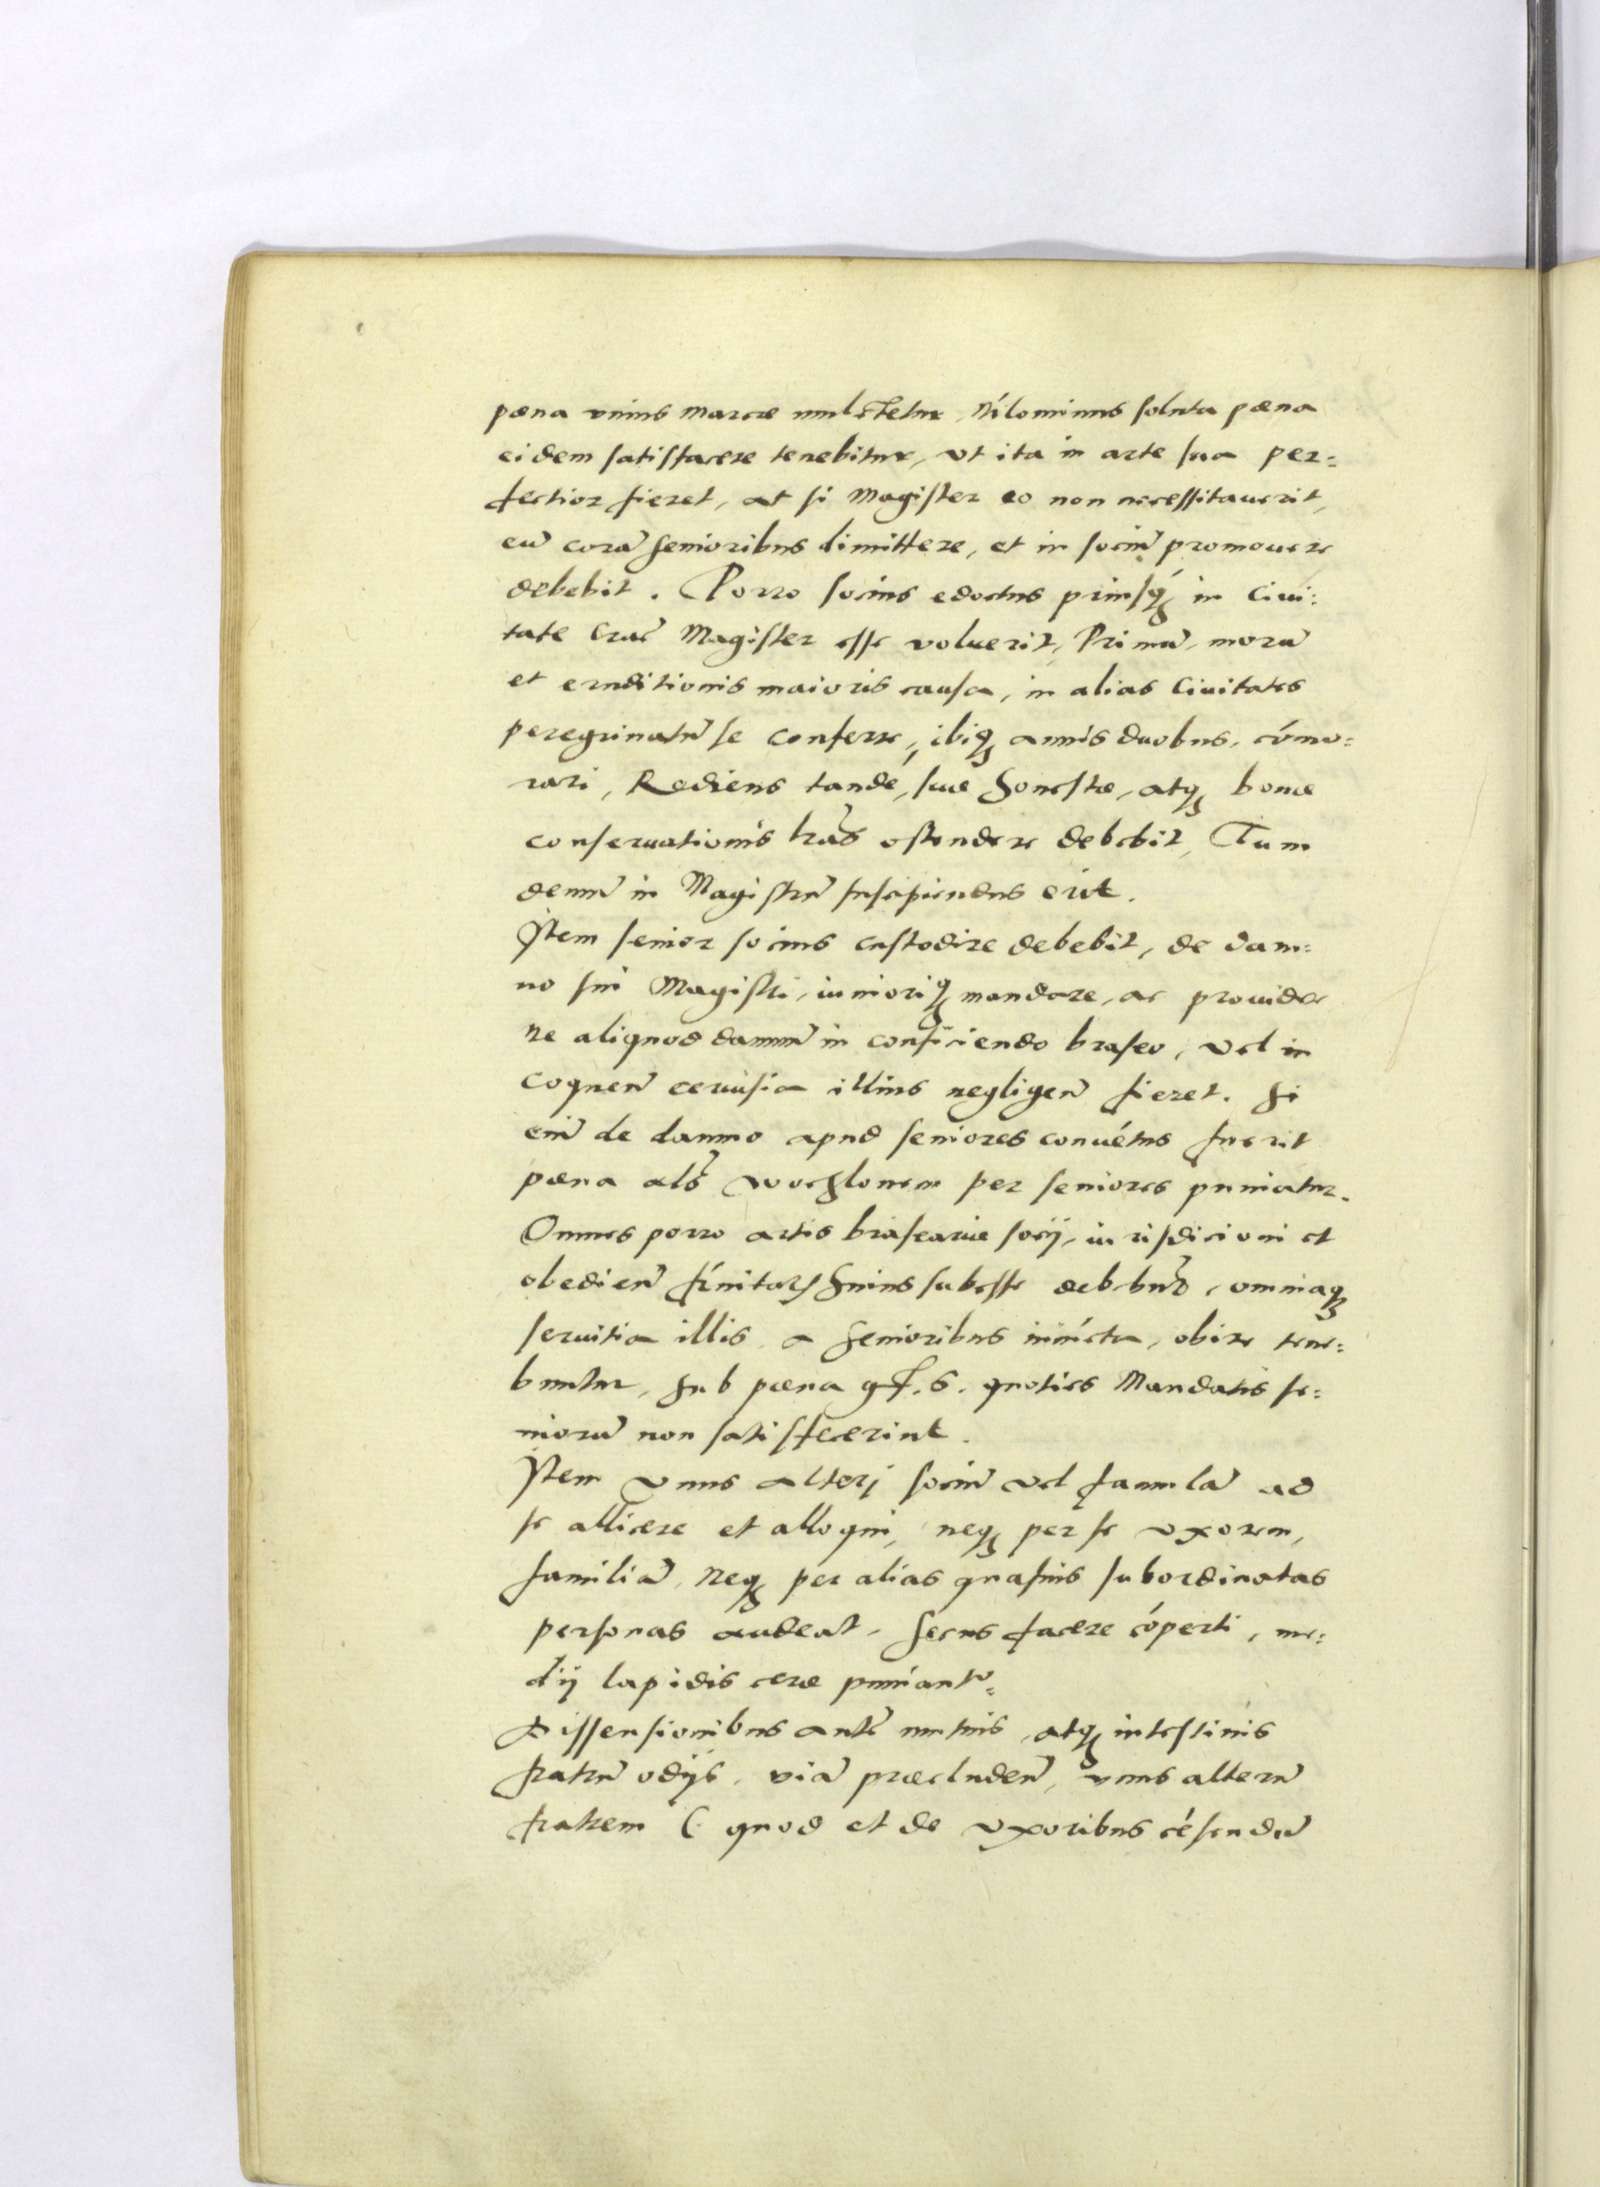 pœna vnius marcæ mulctetur, Nilominus soluta pœna
eidem satisfacere tenebitur, vt ita in arte sua per=
fectior fieret, at si Magister eo non necessitauerit,
eũ corã senioribus dimittere, et in sociũ promouere
debebit. Porro socius edoctus priusq́ꝫ in Ciui:
tate Crac̃ Magister esse voluerit, Primũ, morũ
et eruditionis maioris causa, in alias Ciuitates
peregrinatũ se conferre, ibiqꝫ annis duobus, cómo=
rari, Rediens tandé, suæ honestæ, atqꝫ bonæ
conseruationis lr̃as ostendere debebit, Tum
demũ in Magistrũ suscipiendus erit.
Item senior socius custodire debebit, de dam=
no sui Magistri, iunioriqꝫ mandare, ac prouidere
ne aliquod damnũ in conficiendo braseo, vel in
coqueñ ceruisia illius negligeñ fieret. Si
enĩ de damno apud seniores conuétus fuerit
pœna als̃ wochlonem per seniores puniatur.
Omnes porro artis brasearie socij, iurisdicioni et
obedieñ frńitatꝭ huius subesse debebuñt, omniaqꝫ
seruitia illis a senioribus iniúcta, obire tene=
buntur, Sub pœna gr̃. 6. quoties Mandatis se=
niorũ non satisfecerint.
Item vnus alterj sociũ vel famulũ ad
se allicere et alloqui, neqꝫ per se vxorem,
familiã, Neqꝫ per alias quasuis subordinatas
personas audeat, Secus facere cóperti, me=
dij lapidis ceræ puniant᷑.
Dissensionibus autẽ mutuis, atqꝫ intestinis
fratrũ odijs, viã præcludeñ, vnus alterũ
fratrem ( quod et de vxoribus céfendũ